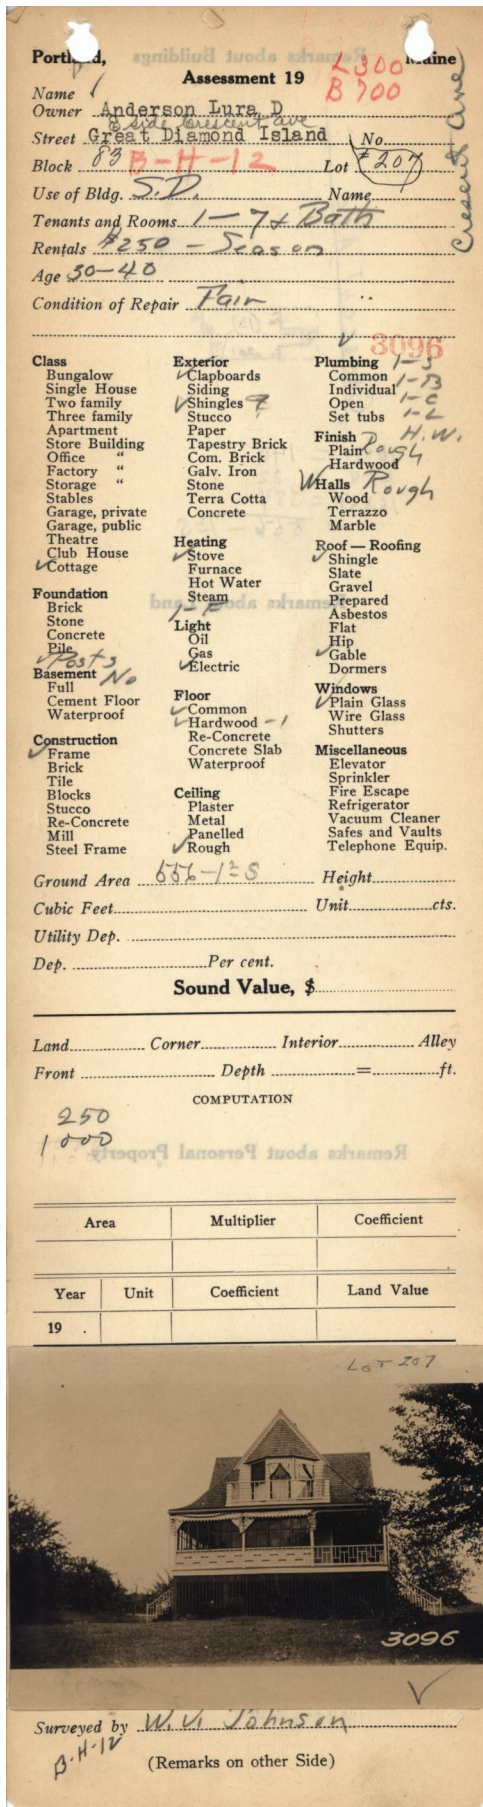 Portland, Maine
Assessment 19
L 300
B 700
Name
Owner Anderson Lura D
E side Crescent Ave
Street Great Diamond Island No.
Crescent Ave
Block 83 B-H-12 Lot #207
Use of Bldg. S.D. Name
Tenants and Rooms 1-7 + Bath
Rentals $250 - Season
Age 30-40
Condition of Repair Fair
3096
Class
Bungalow
Single House
Two family
Three family
Apartment
Store Building
Office "
Factory "
Storage "
Stables
Garage, private
Garage, public
Theatre
Club House
Cottage
Foundation
Brick
Stone
Concrete
Pile
Posts
Basement No
Full
Cement Floor
Waterproof
Construction
Frame
Brick
Tile
Blocks
Stucco
Re-Concrete
Mill
Steel Frame
Exterior
Clapboards
Siding
Shingles
Stucco
Paper
Tapestry Brick
Com. Brick
Galv. Iron
Stone
Terra Cotta
Concrete
Heating
Stove
Furnace
Hot Water
Steam
1-F
Light
Oil
Gas
Electric
Floor
Common
Hardwood - 1
Re-Concrete
Concrete Slab
Waterproof
Ceiling
Plaster
Metal
Panelled
Rough
Plumbing 1-S
Common 1-B
Individual
Open 1-C
Set tubs 1-L
H.W.
Finish
Plain Rough
Hardwood
Halls Rough
Wood
Terrazzo
Marble
Roof — Roofing
Shingle
Slate
Gravel
Prepared
Asbestos
Flat
Hip
Gable
Dormers
Windows
Plain Glass
Wire Glass
Shutters
Miscellaneous
Elevator
Sprinkler
Fire Escape
Refrigerator
Vacuum Cleaner
Safes and Vaults
Telephone Equip.
Ground Area 656-1½ S Height
Cubic Feet Unit cts.
Utility Dep.
Dep. Per cent.
Sound Value, $
Land Corner Interior Alley
Front Depth = ft.
COMPUTATION
250
1000
Remarks about Personal Property
Area Multiplier Coefficient
Year Unit Coefficient Land Value
19 .
LOT 207
3096
Surveyed by W. V. Johnson
B-H-12
(Remarks on other Side)